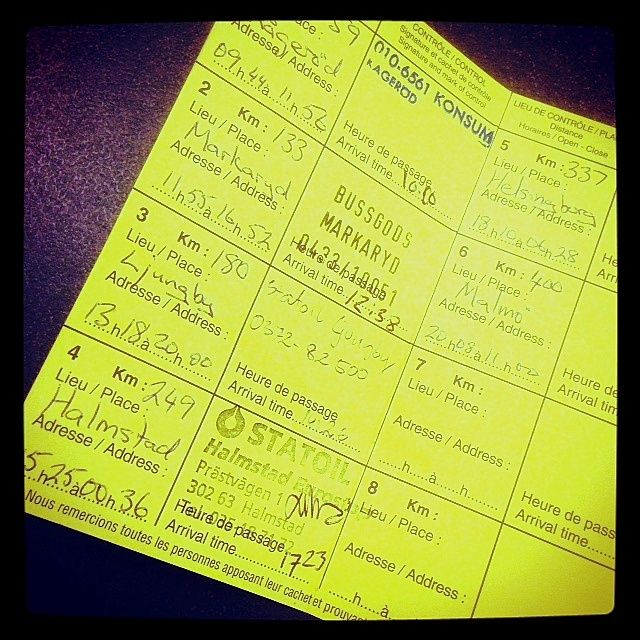 59
Lieu / Place :
Kågeröd
Adresse / Address :
09.h.44.à.11.h.56
CONTRÔLE / CONTROL
Signature et cachet de contrôle
Signature and mark of control
010-6561 KONSUM
KÅGERÖD
Heure de passage
Arrival time 10:10
2 Km : 133
Lieu / Place :
Markaryd
Adresse / Address :
11.h.55.à.16.h.52
BUSSGODS
MARKARYD
0433-10051
Heure de passage
Arrival time 12:38
3 Km : 180
Lieu / Place :
Ljungby
Adresse / Address :
13.h.18.à.20.h.00
Statoil Ljungby
0372-82500
Heure de passage
Arrival time
4 Km : 249
Lieu / Place :
Halmstad
Adresse / Address :
15.h.25.à.00.h.36
STATOIL
Halmstad
Prästvägen 1
302 63 Halmstad
Heure de passage
Arrival time 1723
LIEU DE CONTRÔLE / PLA
Distance
Horaires / Open - Close
5 Km : 337
Lieu / Place :
Helsingborg
Adresse / Address :
18.h.10.à.06.h.28
He
Arriv
6 Km : 400
Lieu / Place :
Malmö
Adresse / Address :
20.h.08.à.11.h.00
Heure de
Arrival tim
7 Km :
Lieu / Place :
Adresse / Address :
h à h
Heure de pass
Arrival time
8 Km :
Lieu / Place :
Adresse / Address :
h à
Nous remercions toutes les personnes apposant leur cachet et prouvant